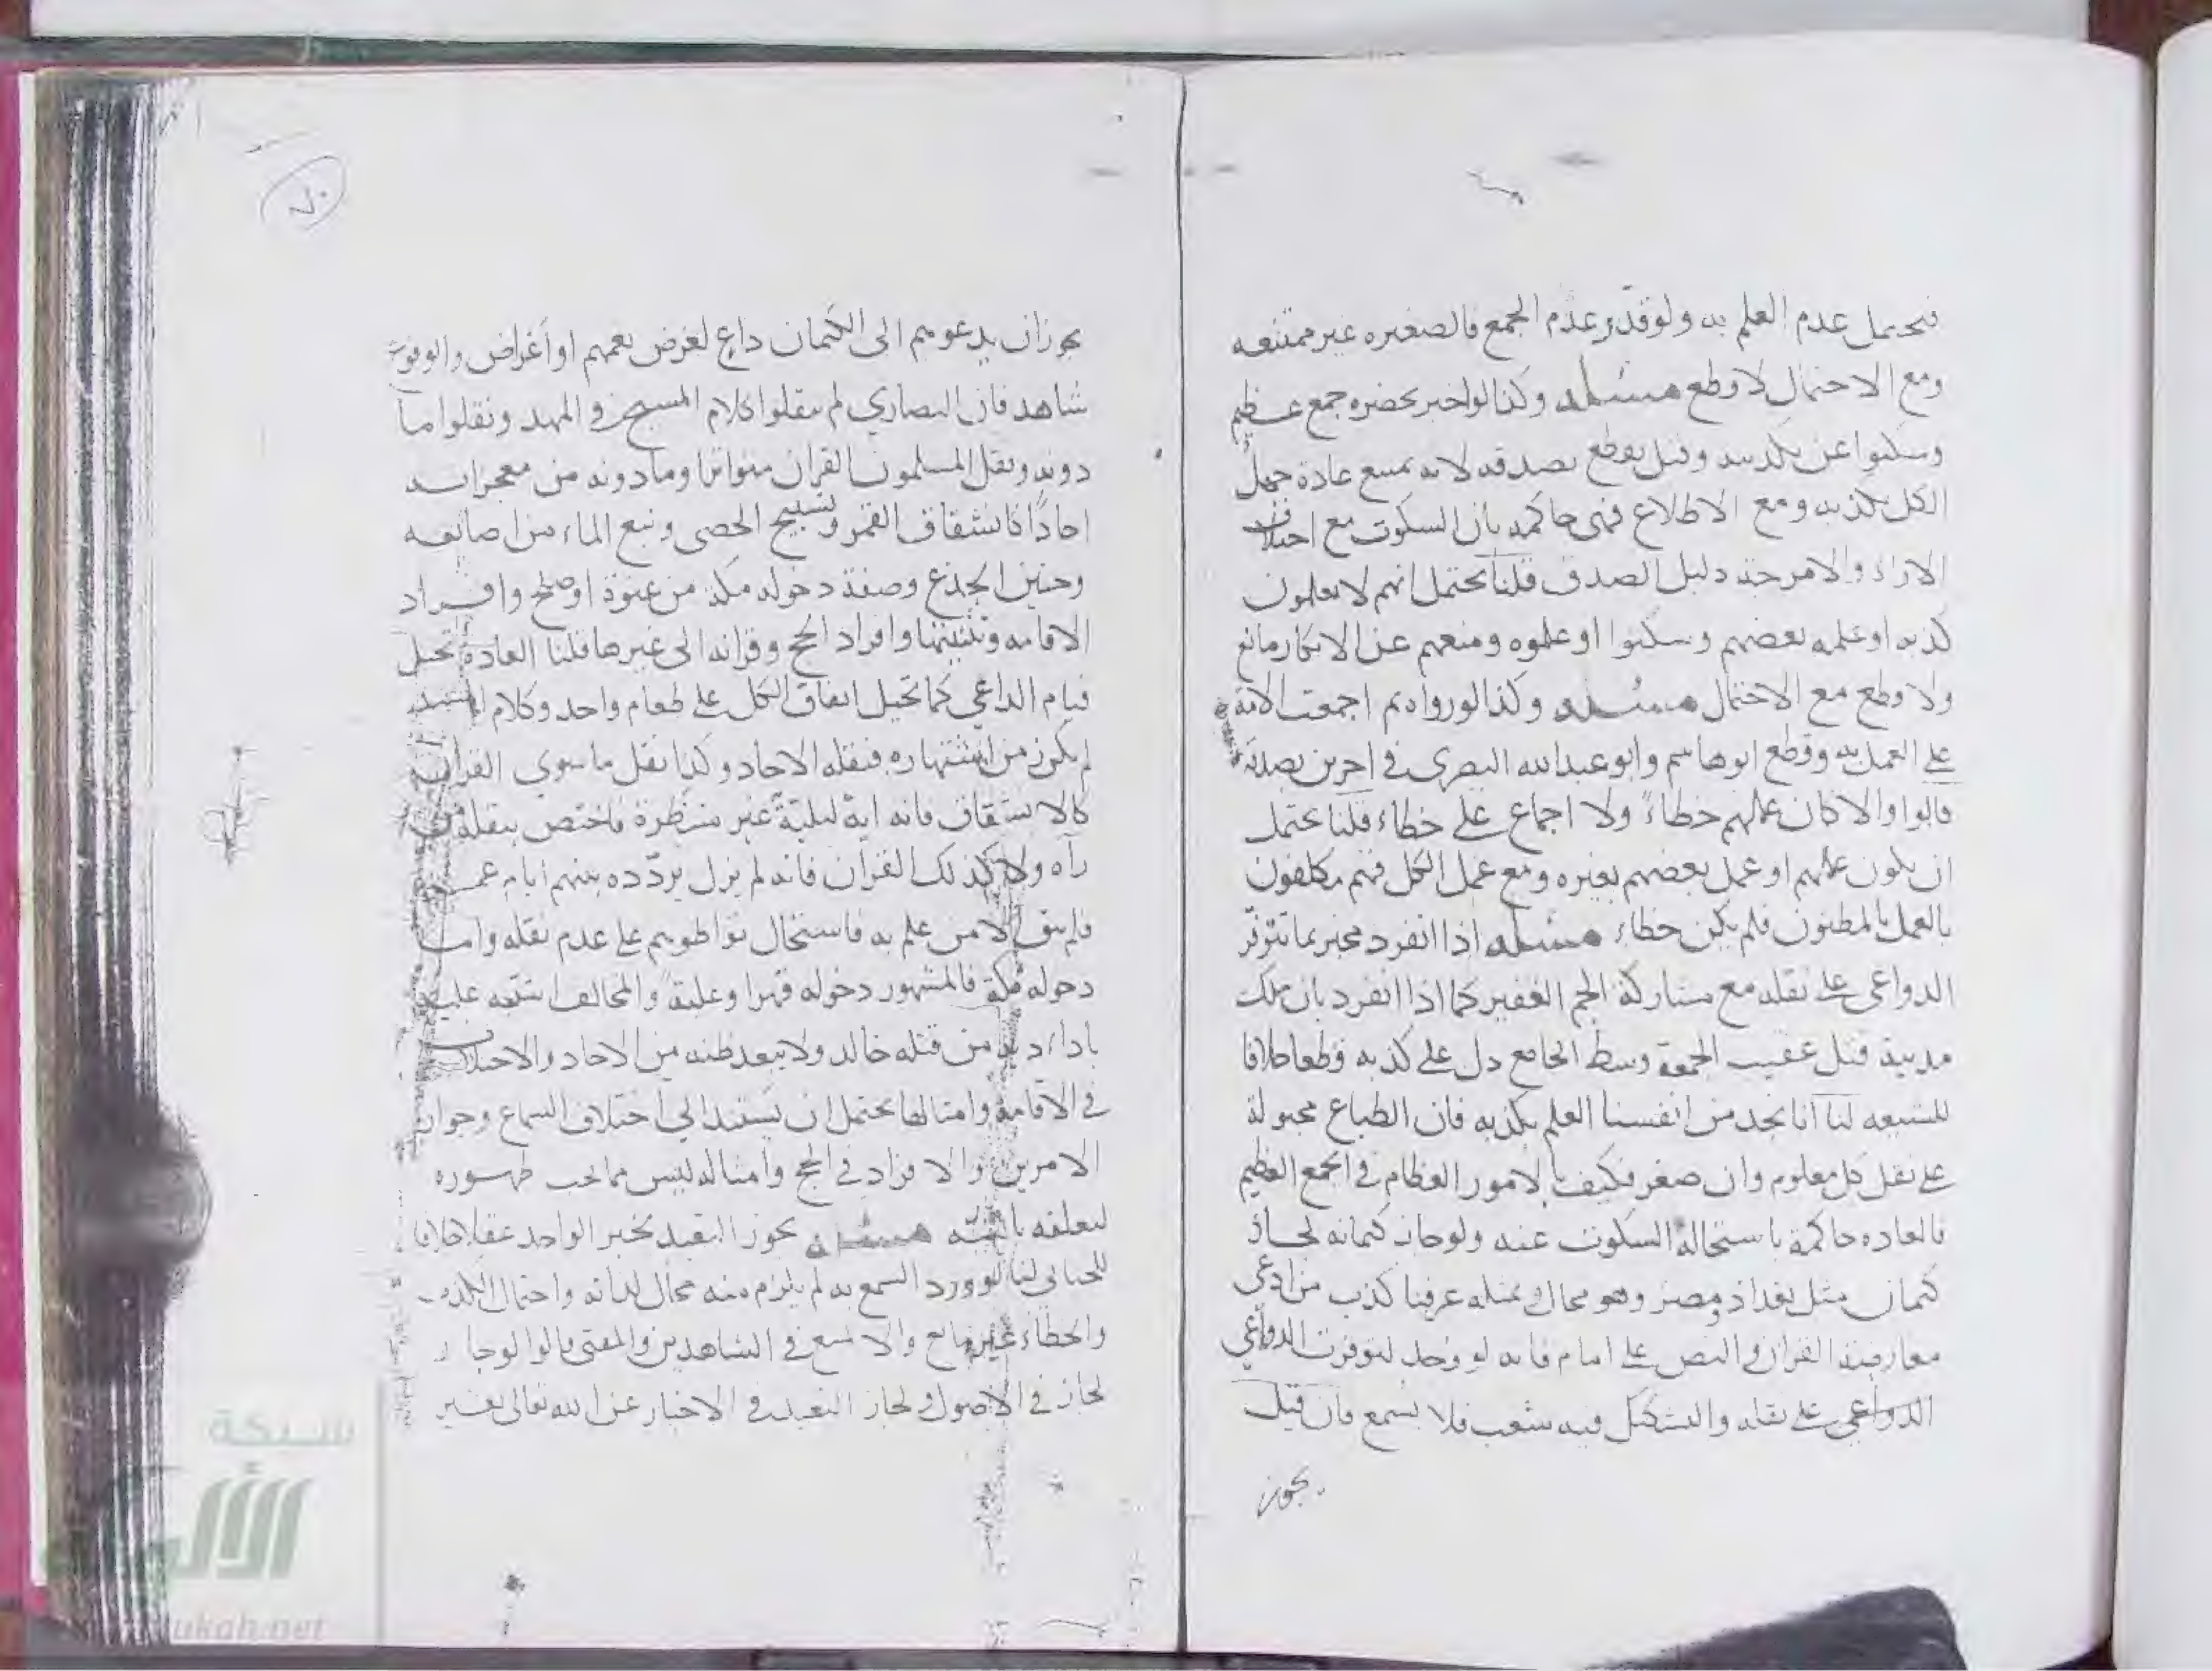 فيحتمل عدم العلم به ولو قدر عدم الجمع فالصغيره غير ممتنعه
ومع الاحتمال لا قطع مسئله وكذا لو اخبر بحضره جمع عظيم
وسكتوا عن تكذيبه وقيل يقطع بصدقه لانه يمتنع عادة جهل
الكل بكذبه ومع الاطلاع فهي حاكمه بان السكوت مع اختلاف
الاراء والامزجة دليل الصدق قلنا يحتمل انهم لا يعلمون
كذبه او علمه بعضهم وسكتوا او علموه ومنعهم عن الانكار مانع
ولا قطع مع الاحتمال مسئله وكذا لو رواه ثم اجمعت الامة
على العمل به وقطع ابو هاشم وابو عبدالله البصري في اخرين بصدقه
قالوا والا كان عملهم خطاءً ولا اجماع على خطاء قلنا يحتمل
ان يكون عملهم او عمل بعضهم بغيره ومع عمل الكل فهم مكلفون
بالعمل بالمظنون فلم يكن خطاء مسئله اذا انفرد مخبر بما تتوفّر
الدواعي على نقله مع مشاركة الجم الغفير كما اذا انفرد بان ملك
مدينة قتل عقيب الجمعة وسط الجامع دل على كذبه قطعا خلافا
للشيعه لنا انا نجد من انفسنا العلم بكذبه فان الطباع مجبولة
على نقل كل معلوم وان صغر فكيف بالامور العظام في الجمع العظيم
فالعاده حاكمة باستحالة السكوت عنه ولو جاز كتمانه لجاز
كتمان مثل بغداد ومصر وهو محال وبمثله عرفنا كذب من ادعى
معارضة القران والنص على امام فانه لو وجد لتوفرت الدواعي
الدواعي على نقله والتشكيك فيه شغب فلا يسمع فان قيل
يجوز
يجوز ان يدعوهم الى الكتمان داعٍ لغرض يعمهم او أغراض والوقوع
شاهد فان النصاري لم ينقلوا كلام المسيح في المهد ونقلوا ما
دونه ونقل المسلمون القران متواترا وما دونه من معجزاته
احادًا كانشقاق القمر وتسبيح الحصى ونبع الماء من اصابعه
وحنين الجذع وصفة دخوله مكة من عنوة او صلح وافراد
الاقامه وتثنيتها وافراد الحج وقرانه الى غيرها قلنا العادة تحيل
قيام الداعي كما تحيل اتفاق الكل على طعام واحد وكلام
لم يكن من اشتهاره فنقله الاحاد وكذا نقل ما سوي القران
كالانشقاق فانه اية ليلية غير منتظرة فاختص بنقله من
رآه ولا كذلك القرآن فانه لم يزل يردّده بينهم ايام عمره
فلم يبق الا من علم به فاستحال تواطوهم على عدم نقله واما
دخوله مكة فالمشهور دخوله قهرا وغلبة والمخالف اشتبه عليه
باداء دية من قتله خالد ولا يبعد ظنه من الاحاد والاختلاف
في الاقامة وامثالها يحتمل ان يستند الي اختلاف السماع وجواز
الامرين والافراد في الحج وامثاله ليس مما يجب ظهوره
لتعلقه بالنية مسئلة يجوز التعبد بخبر الواحد عقلا خلافا
للجبائي لنا لو ورد السمع به لم يلزم منه محال لذاته واحتمال الكذب
والخطاء غير مانع والا لمنع في الشاهدين والمفتى قالوا لو جاز
لجاز في الاصول ولجاز التعبد في الاخبار عن الله تعالى بغير